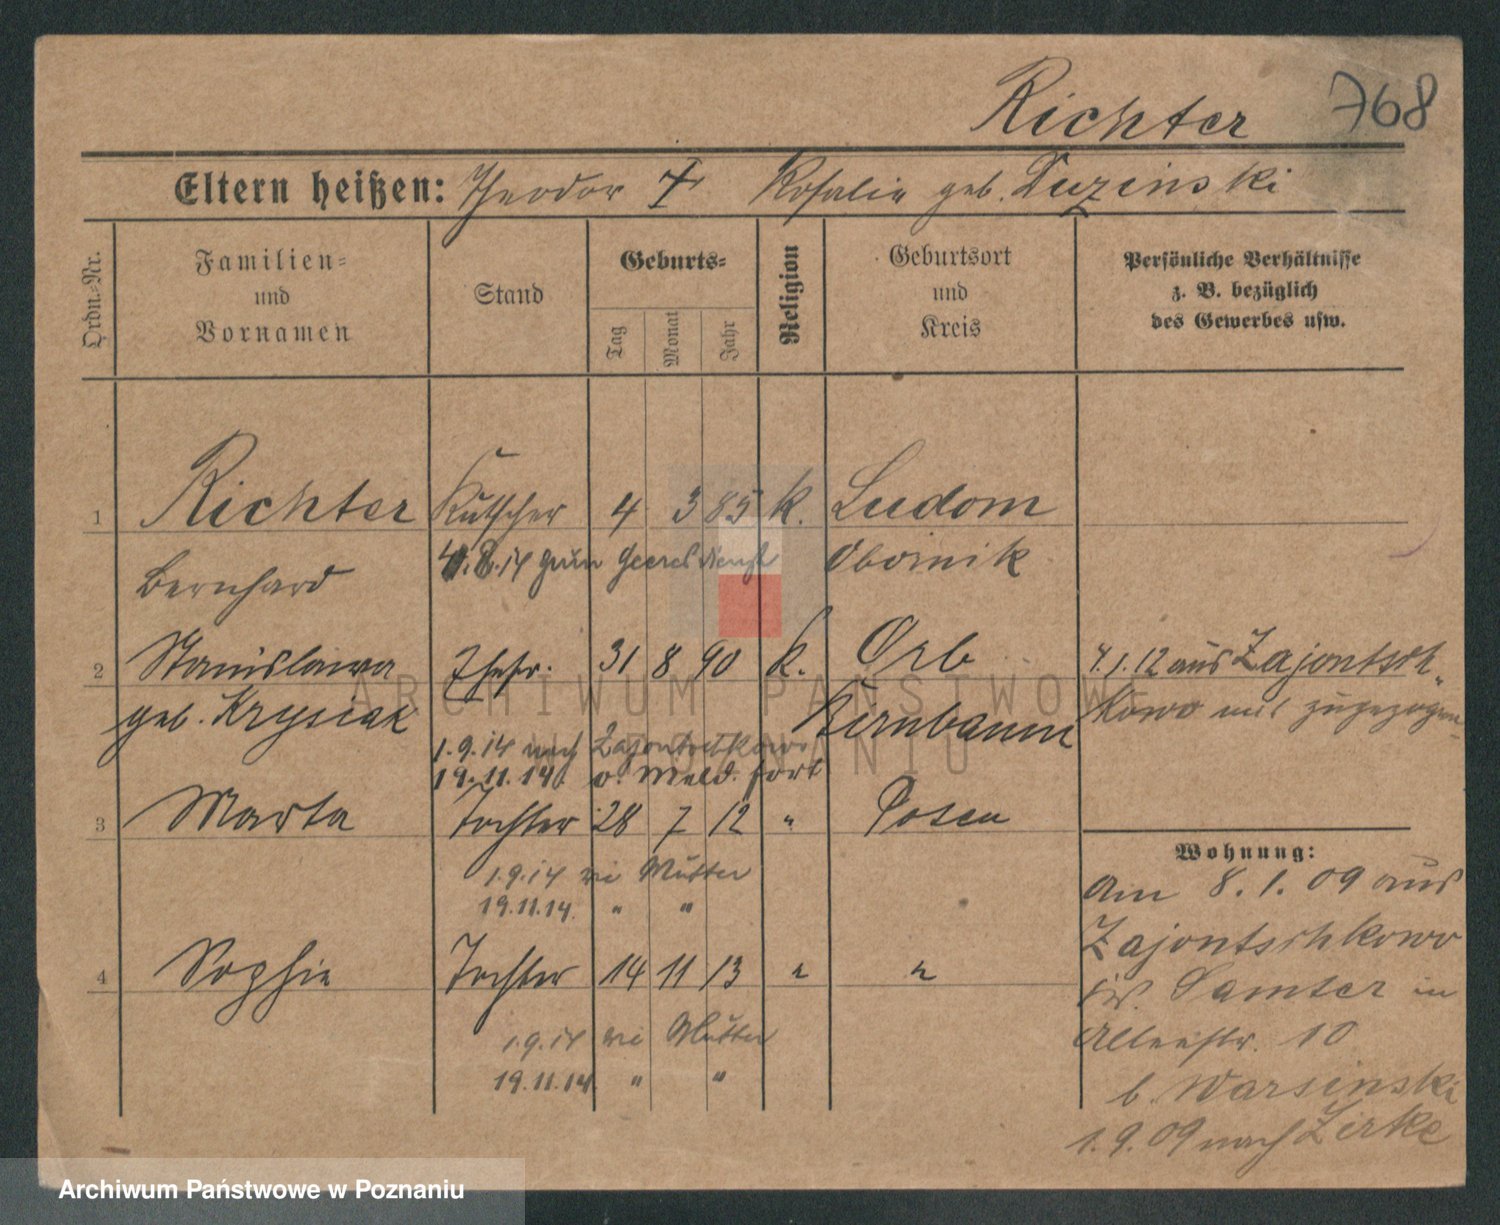 Richter 768
Eltern heißen: Theodor † Rosalie geb. Duzinski
Ordn.-Nr.
Familien-
und
Vornamen
Stand
Geburts-
Tag
Monat
Jahr
Religion
Geburtsort
und
Kreis
Persönliche Verhältnisse
z. B. bezüglich
des Gewerbes usw.
1 Richter Kutscher 4 3 85 k. Ludom
Bernhard
4.8.14 zum Heeresdienst Obornik
2 Stanislawa Ehefr. 31 8 90 k. Orb
geb. Krysiak Birnbaum
4.1.12 aus Zajontsch-
kowo zugezogen
1.9.14 nach Zajontschkowo
19.11.14. o. Meld. fort
3 Marta Tochter 28 7 12 " Posen
1.9.14 wie Mutter
19.11.14. " "
4 Sophie Tochter 14 11 13 " "
1.9.14 wie Mutter
19.11.14. " "
Wohnung:
Am 8.1.09 aus
Zajontschkowo
Samter in
10
b. Warsinski
1.9.09 nach Zirke
ARCHIWUM PAŃSTWOWE
W POZNANIU
Archiwum Państwowe w Poznaniu